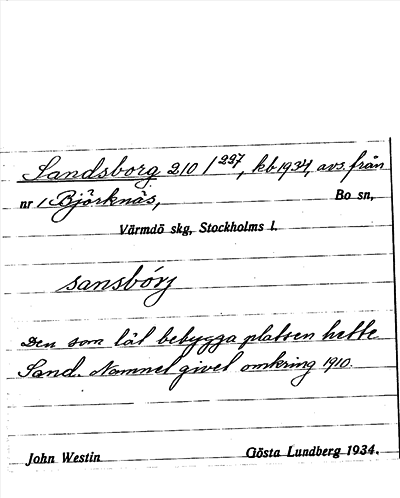 Sandsborg 210 / 227, kb 1934, avs. från
nr 1 Björknäs, Bo sn,
Värmdö skg, Stockholms l.
sansbórj
Den som lät bebygga platsen hette
Sand. Namnet givet omkring 1910.
John Westin Gösta Lundberg 1934.